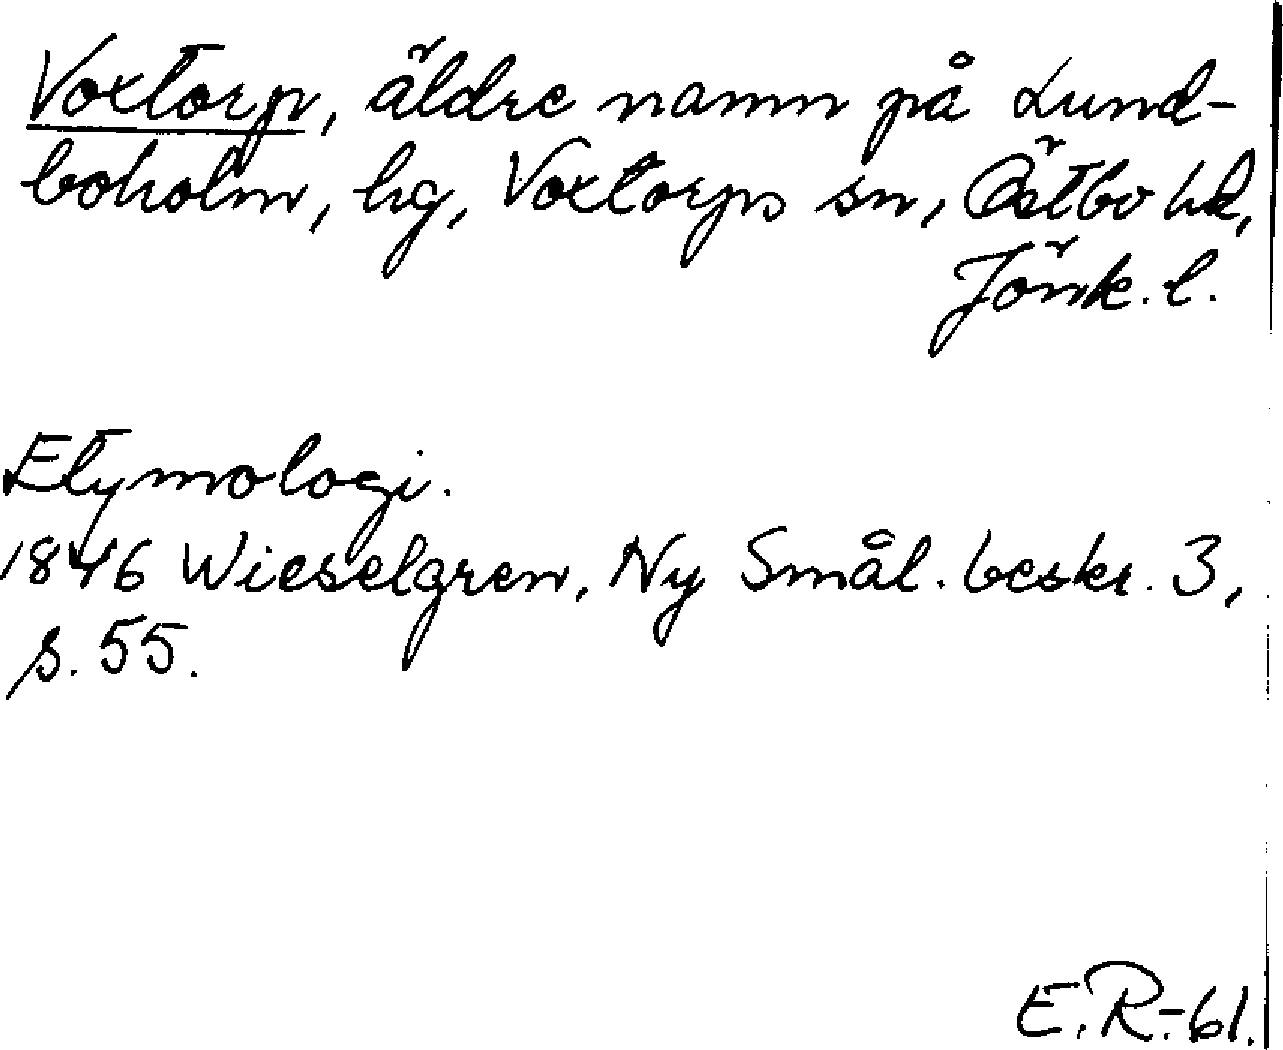 Voxtorp, äldre namn på Lund-
boholm, hg, Voxtorps sn, Östbo hd,
Jönk. l.
Etymologi.
1846 Wieselgren, Ny Smål. beskr. 3,
s. 55.
E.R.-61.